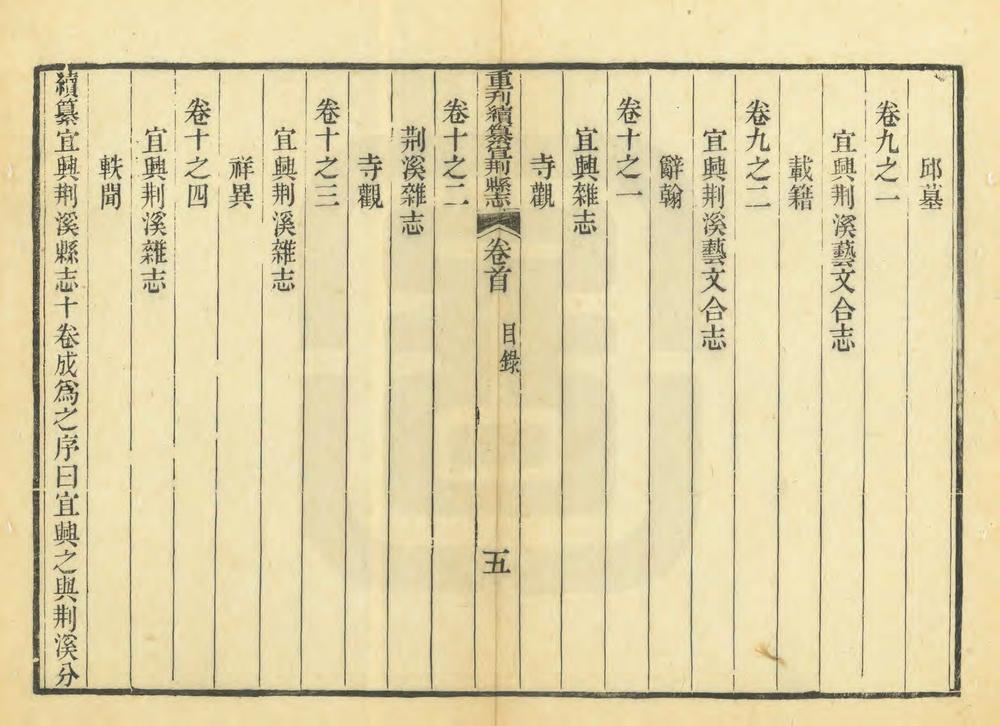 邱墓
卷九之一
宜興荆溪藝文合志
載籍
卷九之二
宜興荆溪藝文合志
辭翰
卷十之一
宜興雜志
寺觀
重刋續纂宜荆縣志
卷首
目錄
五
卷十之二
荆溪雜志
寺觀
卷十之三
宜興荆溪雜志
祥異
卷十之四
宜興荆溪雜志
軼聞
續纂宜興荆溪縣志十卷成爲之序曰宜興之與荆溪分